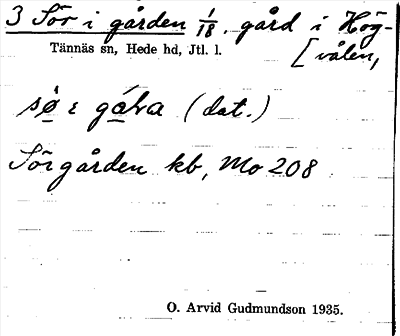 3 Sör i gården 1/18. gård i Hög-
Tännäs sn, Hede hd, Jtl. l. [vålen,
(dat.)
Sörgården kb, Mo 208
O. Arvid Gudmundson 1935.